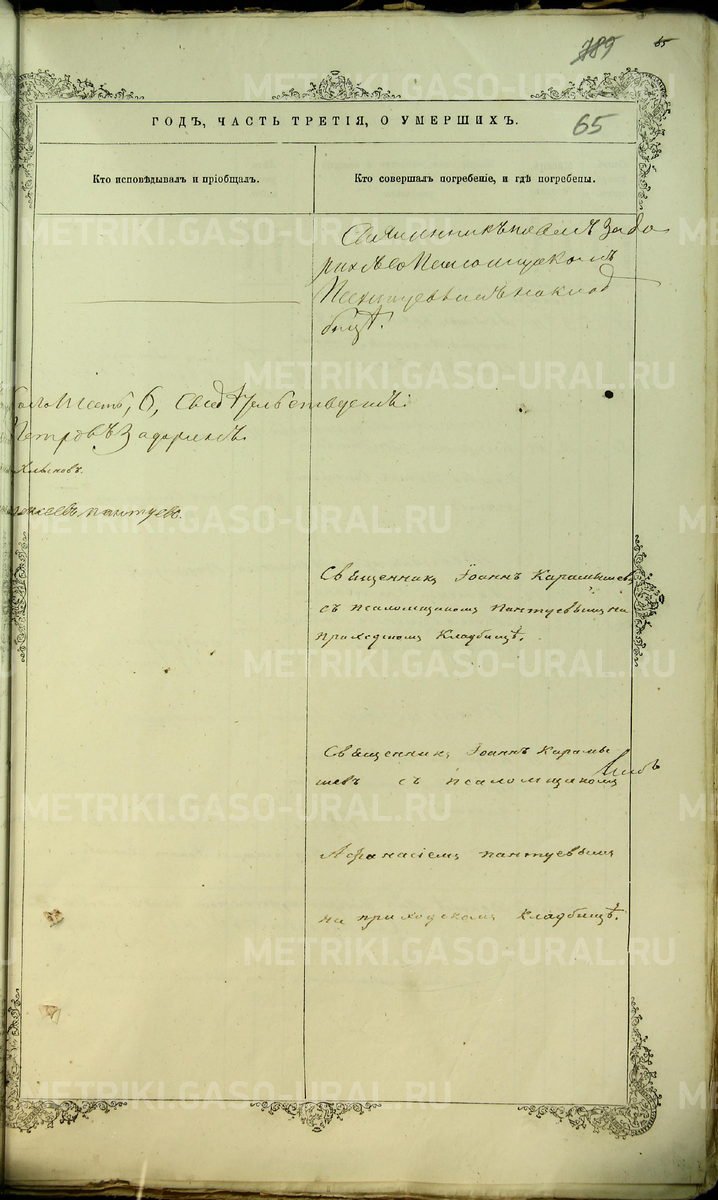 789
65
65
ГОДЪ, ЧАСТЬ ТРЕТІЯ, О УМЕРШИХЪ.
Кто исповѣдывалъ и пріобщалъ.
Кто совершалъ погребеніе, и гдѣ погребены.
Священникъ Задо
ринъ съ Псаломщикомъ
Пантуевымъ на клад
бищѣ.
6, свидѣтельствуемъ:
Петровъ Задоринъ
Хлыновъ.
Пантуевъ.
Священникъ Іоаннъ Карамышев
съ псаломщикомъ Пантуевымъ на
приходскомъ кладбищѣ.
Священникъ Іоаннъ Карамы
шевъ съ псаломщикомъ
Афанасіемъ Пантуевымъ
на приходскомъ кладбищѣ.
METRIKI.GASO-URAL.RU